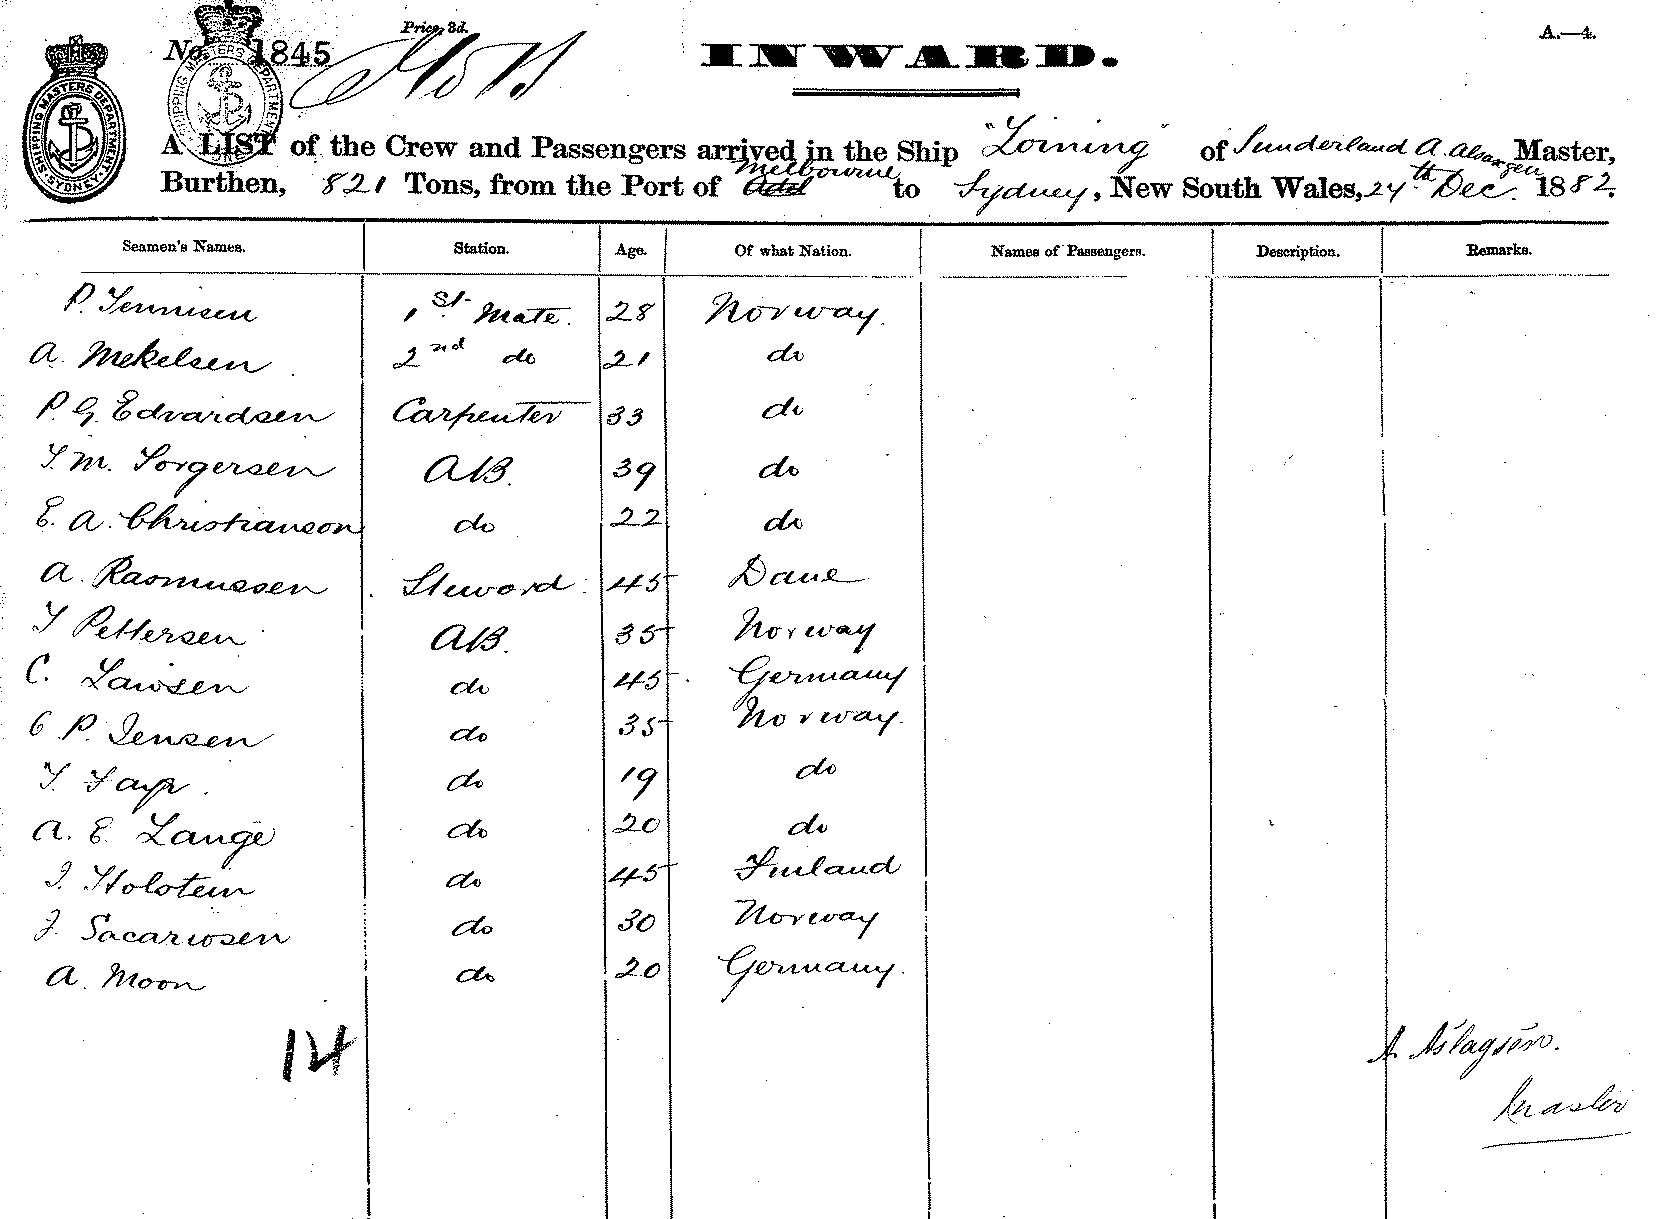 Price, 3d.
A.—4.
No. 1845
INWARD.
SHIPPING MASTERS DEPARTMENT SYDNEY
A LIST of the Crew and Passengers arrived in the Ship "Loining" of Sunderland A. Alsaagen Master,
Burthen, 821 Tons, from the Port of Melbourne to Sydney, New South Wales, 24th Dec. 1882.
Seamen's Names. Station. Age. Of what Nation. Names of Passengers. Description. Remarks.
P. Tennisen 1st Mate. 28 Norway.
A. Mekelsen 2nd do 21 do
P. G. Edvardsen Carpenter 33 do
T. M. Torgersen AB. 39 do
E. A. Christianson do 22 do
A. Rasmussen Steword 45 Dane
T Pettersen AB. 35 Norway
C. Lawsen do 45 Germany
C P. Jensen do 35 Norway.
T. do 19 do
A. E. Lange do 20 do
J. Holstein do 45 Finland
J. Sacariosen do 30 Norway
A. Moon do 20 Germany.
14
A. Aslagsen.
Master